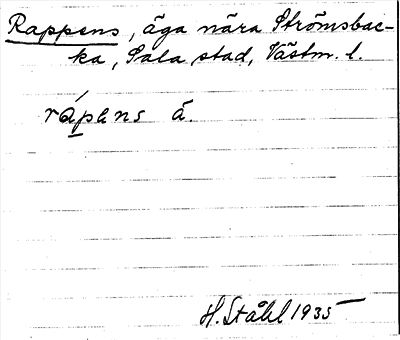 Rappens, äga nära Strömsbac-
ka, Sala stad, Västm. l.
rápans å.
H. Ståhl 1935